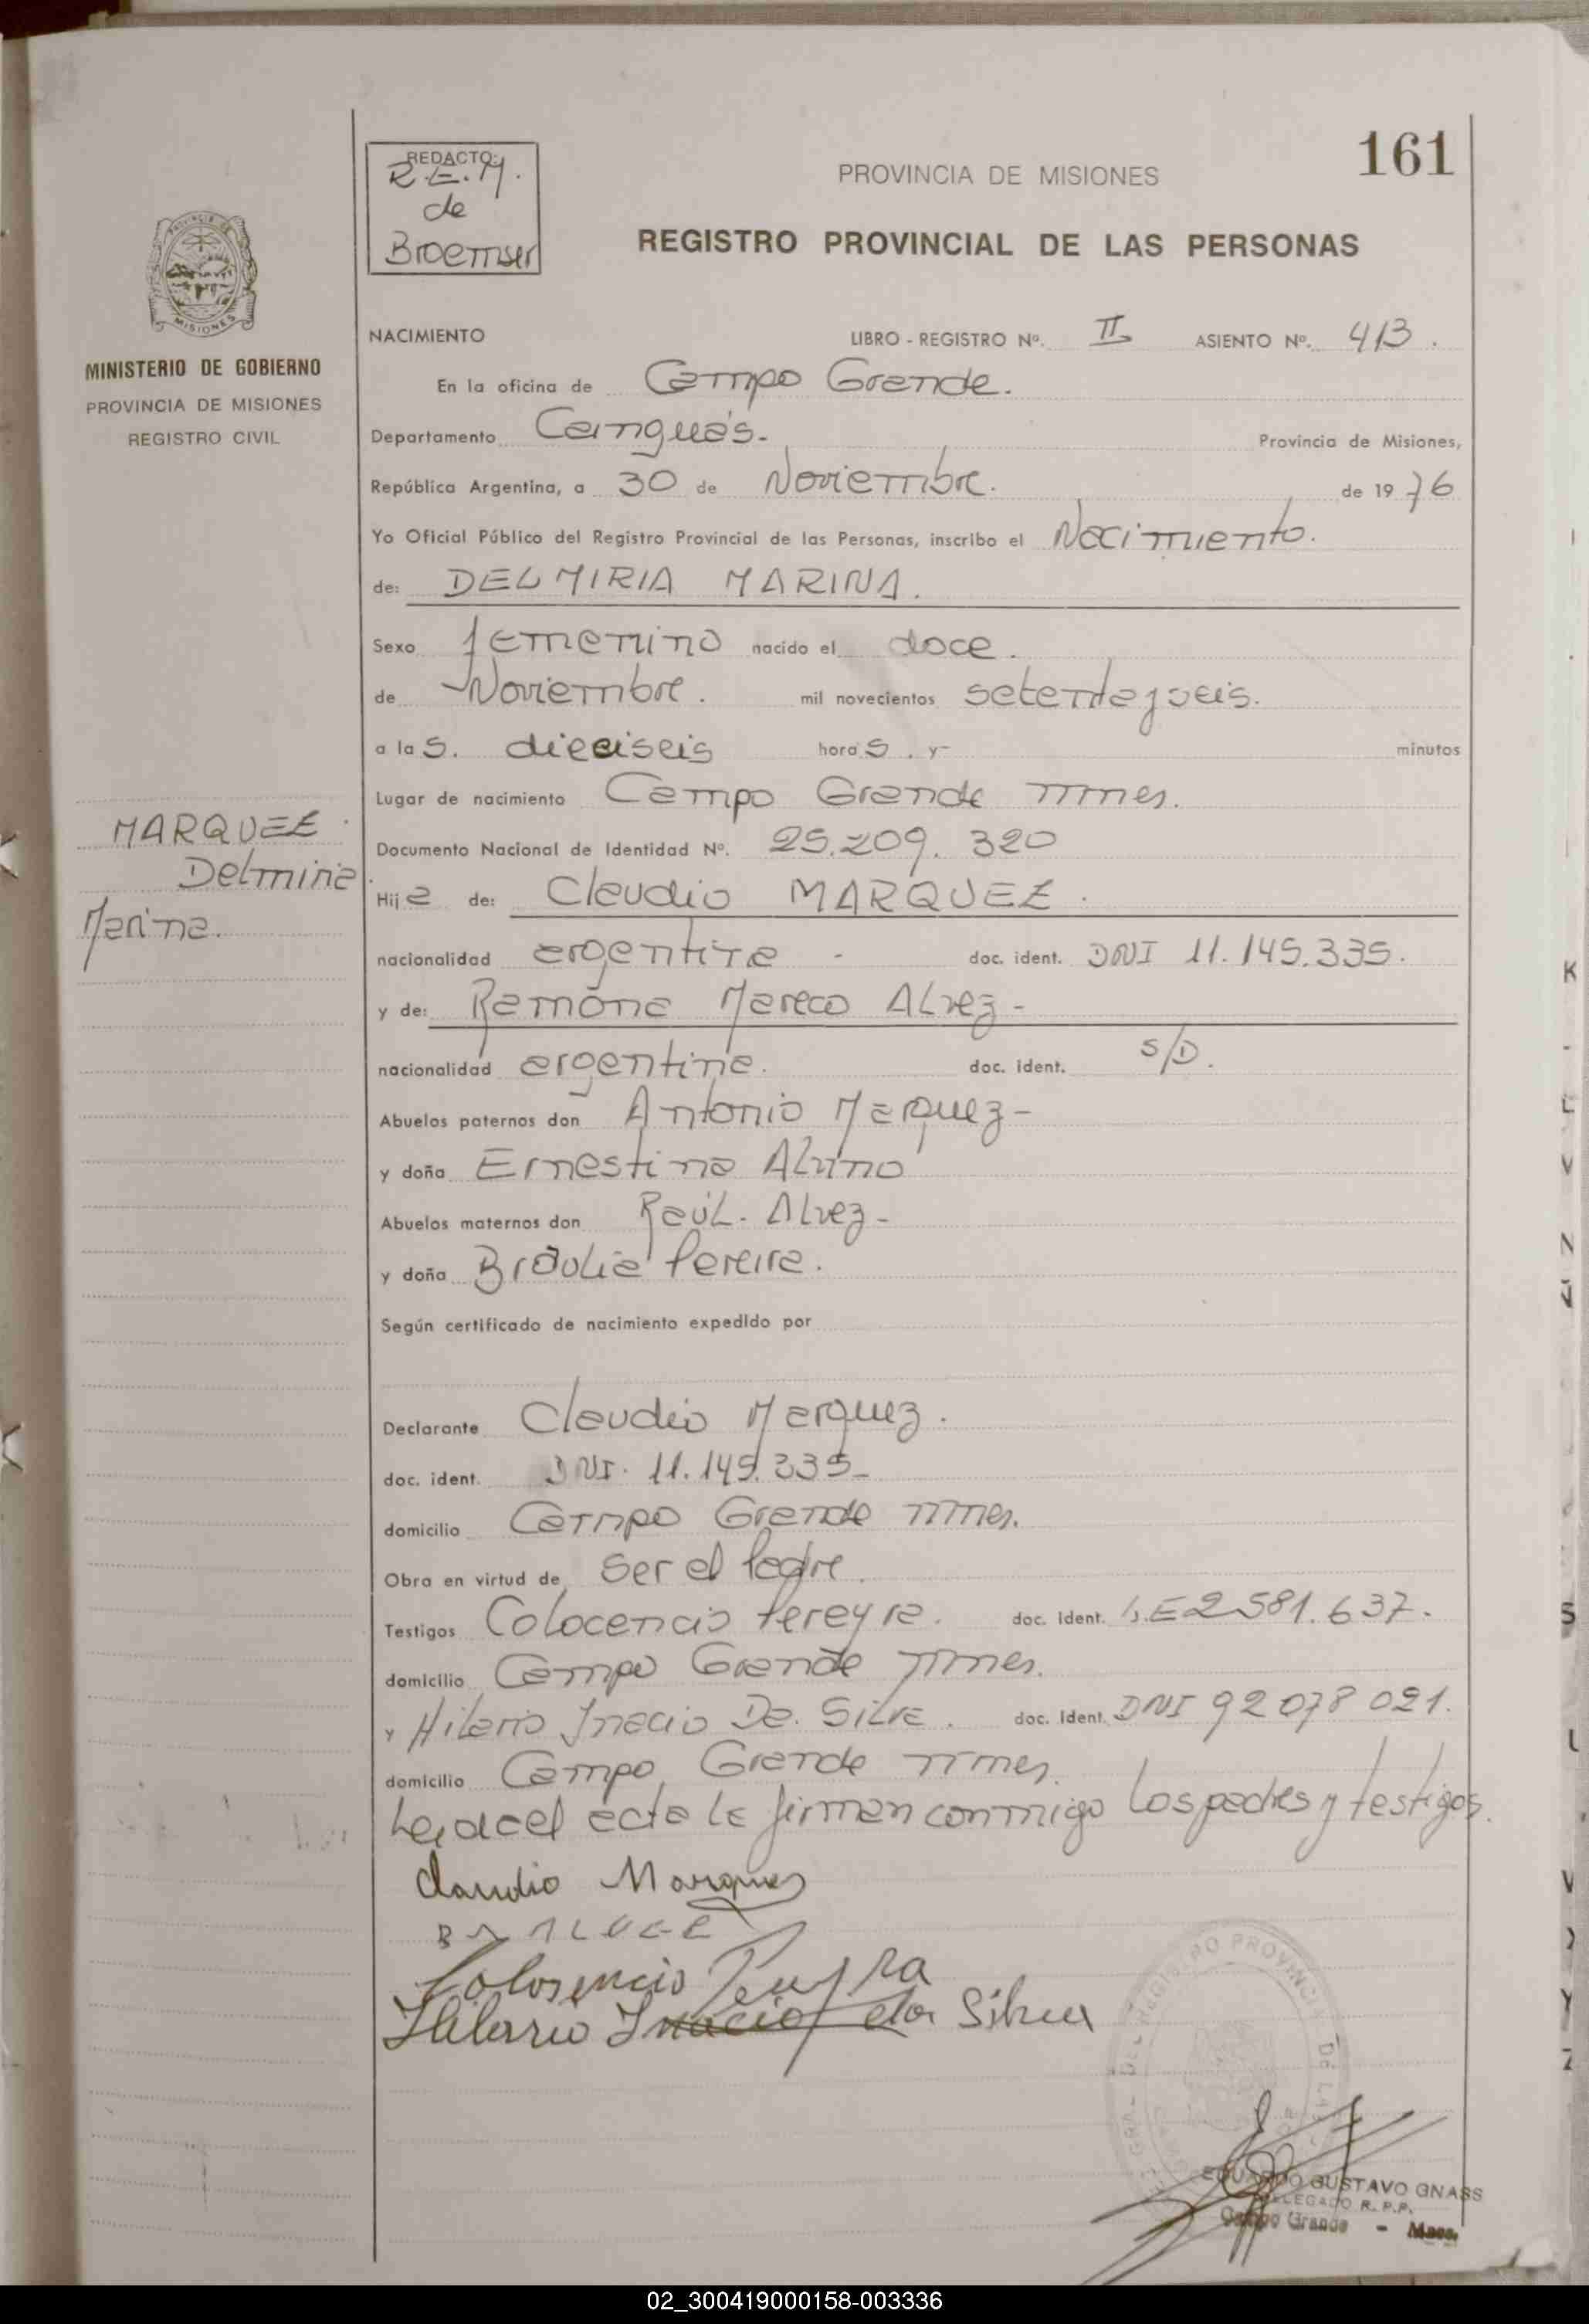 161
REDACTO:
R.E.M.
de
Broemser
PROVINCIA DE MISIONES
REGISTRO PROVINCIAL DE LAS PERSONAS
MISIONES
MINISTERIO DE GOBIERNO
PROVINCIA DE MISIONES
REGISTRO CIVIL
NACIMIENTO LIBRO - REGISTRO Nº. II ASIENTO Nº. 413.
En la oficina de Campo Grande.
Departamento Cainguás.- Provincia de Misiones,
República Argentina, a 30 de Noviembre. de 19 76
Yo Oficial Público del Registro Provincial de las Personas, inscribo el Nacimiento.
de: DELMIRIA MARINA.
Sexo femenino nacido el doce.
de Noviembre. mil novecientos setenta y seis.
a la s. dieciseis hora s. y- minutos
Lugar de nacimiento Campo Grande Mnes.
Documento Nacional de Identidad Nº. 25.209.320
MARQUEZ.
Delmiria
Marina.
Hij a de: Claudio MARQUEZ.
nacionalidad argentina - doc. ident. DNI 11.145.335.
y de: Ramona Mareco Alvez-
nacionalidad argentina. doc. ident. S/D.
Abuelos paternos don Antonio Marquez-
y doña Ernestina Alvino
Abuelos maternos don Raúl. Alvez-
y doña Braulia Pereira.
Según certificado de nacimiento expedido por
Declarante Claudio Marquez.
doc. ident. DNI. 11.145.335-
domicilio Campo Grande Mnes.
Obra en virtud de ser el Padre.
Testigos Colocencio Pereyra. doc. ident. L.E 2581.637.
domicilio Campo Grande Mnes.
y Hilario Inacio Da. Silva. doc. ident. DNI 92 078 021.
domicilio Campo Grande Mnes.
Leida el acta la firman conmigo los padres y testigos.
Claudio Marques
Colosencio Pereyra
Hilario Inacio da Silva
EDUARDO GUSTAVO GNASS
DELEGADO R.P.P.
Campo Grande - Mnes.
02_300419000158-003336